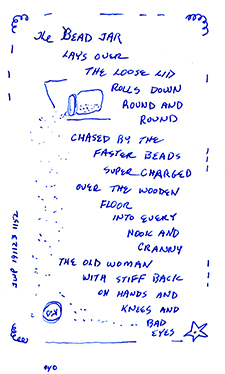 The BEAD JAR
LAYS OVER
THE LOOSE LID
ROLLS DOWN
ROUND AND
ROUND
CHASED BY THE
FASTER BEADS
SUPER CHARGED
OVER THE WOODEN
FLOOR
INTO EVERY
NOOK AND
CRANNY
THE OLD WOMAN
WITH STIFF BACK
ON HANDS AND
KNEES AND
BAD
EYES
JWP 191123 1152